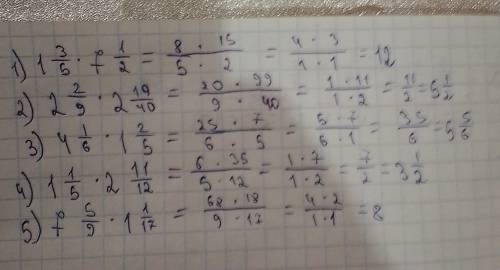 1) 1 3/5 · 7 1/2 = (8 · 15)/(5 · 2) = (4 · 3)/(1 · 1) = 12
2) 2 2/9 · 2 19/40 = (20 · 99)/(9 · 40) = (1 · 11)/(1 · 2) = 11/2 = 5 1/2
3) 4 1/6 · 1 2/5 = (25 · 7)/(6 · 5) = (5 · 7)/(6 · 1) = 35/6 = 5 5/6
4) 1 1/5 · 2 11/12 = (6 · 35)/(5 · 12) = (1 · 7)/(1 · 2) = 7/2 = 3 1/2
5) 7 5/9 · 1 1/17 = (68 · 18)/(9 · 17) = (4 · 2)/(1 · 1) = 8